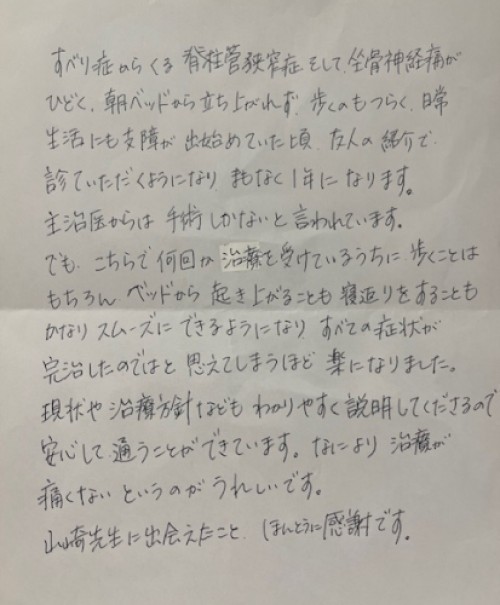 すべり症からくる 脊柱管狭窄症 そして、坐骨神経痛が
ひどく、朝ベッドから立ち上がれず、歩くのもつらく、日常
生活にも支障が出始めていた頃、友人の紹介で
診ていただくようになり まもなく1年になります。
主治医からは 手術しかないと言われています。
でも、こちらで何回か 治療を受けているうちに 歩くことは
もちろん、ベッドから 起き上がることも 寝返りをすることも
かなりスムーズに できるようになり すべての症状が
完治したのではと 思えてしまうほど 楽になりました。
現状や 治療方針なども わかりやすく説明してくださるので
安心して通うことができています。なにより 治療が
痛くない というのが うれしいです。
山崎先生に出会えたこと、ほんとうに感謝です。